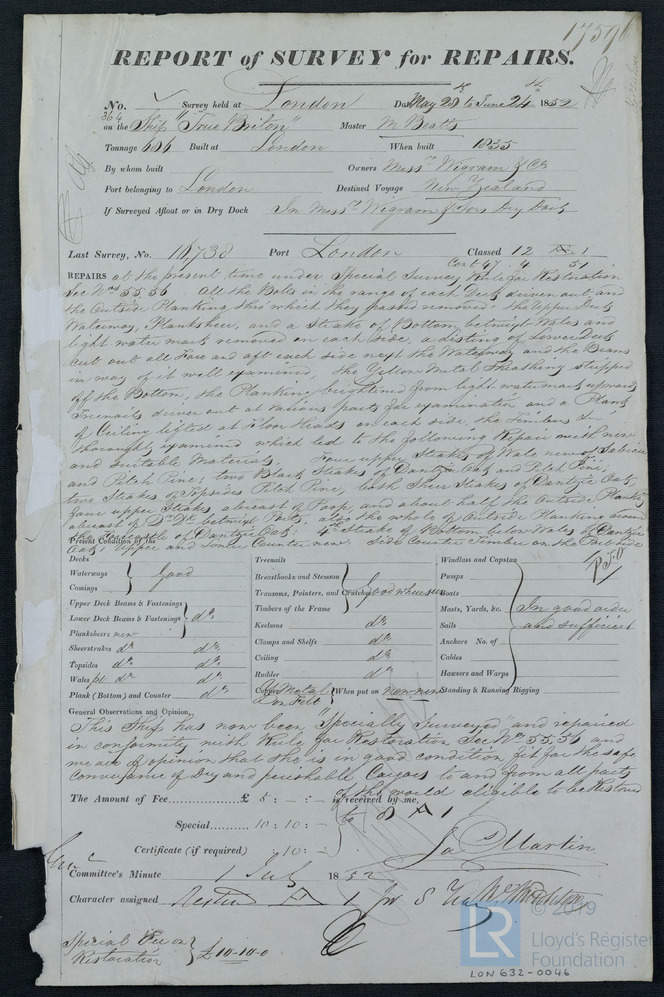 REPORT of SURVEY for REPAIRS.
No. Survey held at London Date May 20 to June 24 1852
364
on the Ship "True Briton" Master M Beatts
Tonnage 646 Built at London When built 1835
By whom built Owners Messrs Wigram & Co
Port belonging to London Destined Voyage New Zealand
If Surveyed Afloat or in Dry Dock In Messrs Wigram & Sons Dry Dock
Last Survey, No. 16738 Port London Classed 12 A 1
Cont 47 4 51
REPAIRS at the present time under Special Survey Rule for Restoration
Sec Nos 55.56. All the Bolts in the range of each Deck driven out and
the Outside Planking thro which they passed removed. The Upper Deck
Waterway, Plansheer, and a Strake of Bottom betwixt Wales and
light water mark removed on each side, a listing of Lower Deck
cut out all Fore and aft each side next the Waterway and the Beams
in way of it well examined, the Yellow Metal Sheathing stripped
off the Bottom, the Planking brightened from light watermark upwards
Treenails driven out at various parts for examination and a Plank
of Ceiling lifted at Floor Heads on each side, the Timbers &c
thoroughly examined which led to the following Repair with new
and suitable Materials. Four upper Strakes of Wale new of Sabicu
and Pitch Pine; two Black Strakes of Dantzic Oak and Pitch Pine,
two Strakes of Topsides Pitch Pine, both Sheer Strakes of Dantzic Oak,
four upper Strakes abreast of Poop and about half the Outside Planks
abreast of Do betwixt Ports, also the whole of Outside Planking around
of Dantzic Oak, 4 Strakes of Bottom below Wales of Dantzic
Oak; Upper and Lower Counter new. Side Counter Timber on the Port side
P.T.O
Present Condition of the
Decks
Waterways
Comings
Good
Upper Deck Beams & Fastenings
Lower Deck Beams & Fastenings do
Planksheers new
Sheerstrakes do do
Topsides do do
Wales pt do do
Plank (Bottom) and Counter do
Treenails
Breasthooks and Stemson
Transoms, Pointers, and Crutches Good where seen
Timbers of the Frame
Keelsons do
Clamps and Shelfs do
Ceiling do
Rudder do
Copper Y Metal on Felt When put on new now
Windlass and Capstan
Pumps
Boats
Masts, Yards, &c.
Sails
Anchors No. of
Cables
Hawsers and Warps
Standing & Running Rigging
In good order
and sufficient
General Observations and Opinion,
This Ship has now been "Specially Surveyed" and repaired
in conformity with Rule for Restoration Sec Nos 55.56 and
we are of opinion that she is in good condition fit for the safe
conveyance of Dry and perishable Cargoes to and from all parts
of the world eligible to be Restored
to 8 A 1
The Amount of Fee £ 5 : - : - is received by me,
Special 10 : 10 : -
Certificate (if required) 10 : -
Jas Martin
Committee's Minute 1 July 1852
Character assigned A 1
Special Fee on
Restoration £10-10-0
© 2019
LR
Lloyd's Register
Foundation
LON 632-0046